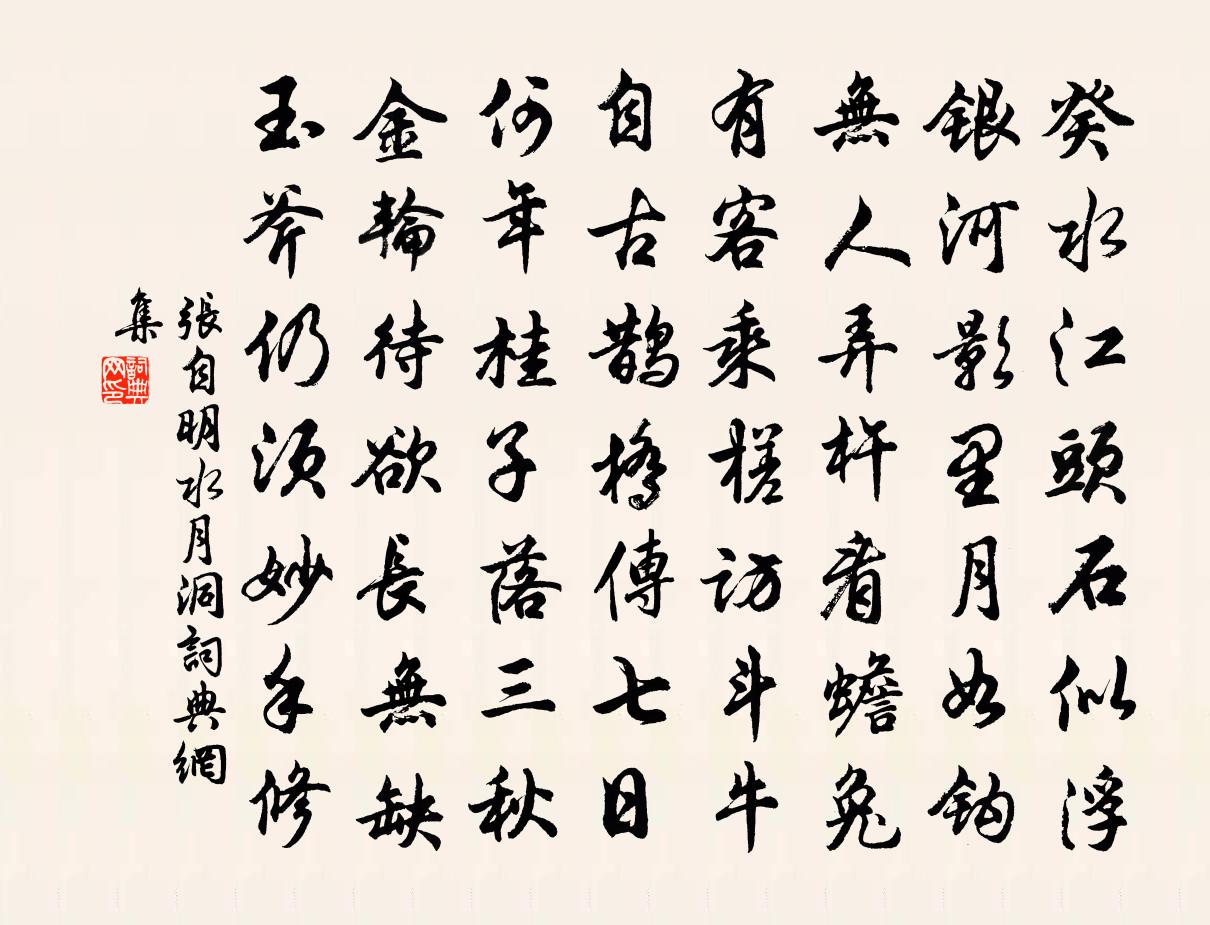 癸水江頭石似浮
銀河影里月如鈎
無人弄杵看蟾兔
有客乘槎訪斗牛
自古鵲橋傳七日
何年桂子落三秋
金輪待欲長無缺
玉斧仍須妙手修
張自明水月洞詞典網
集
詞典
网印